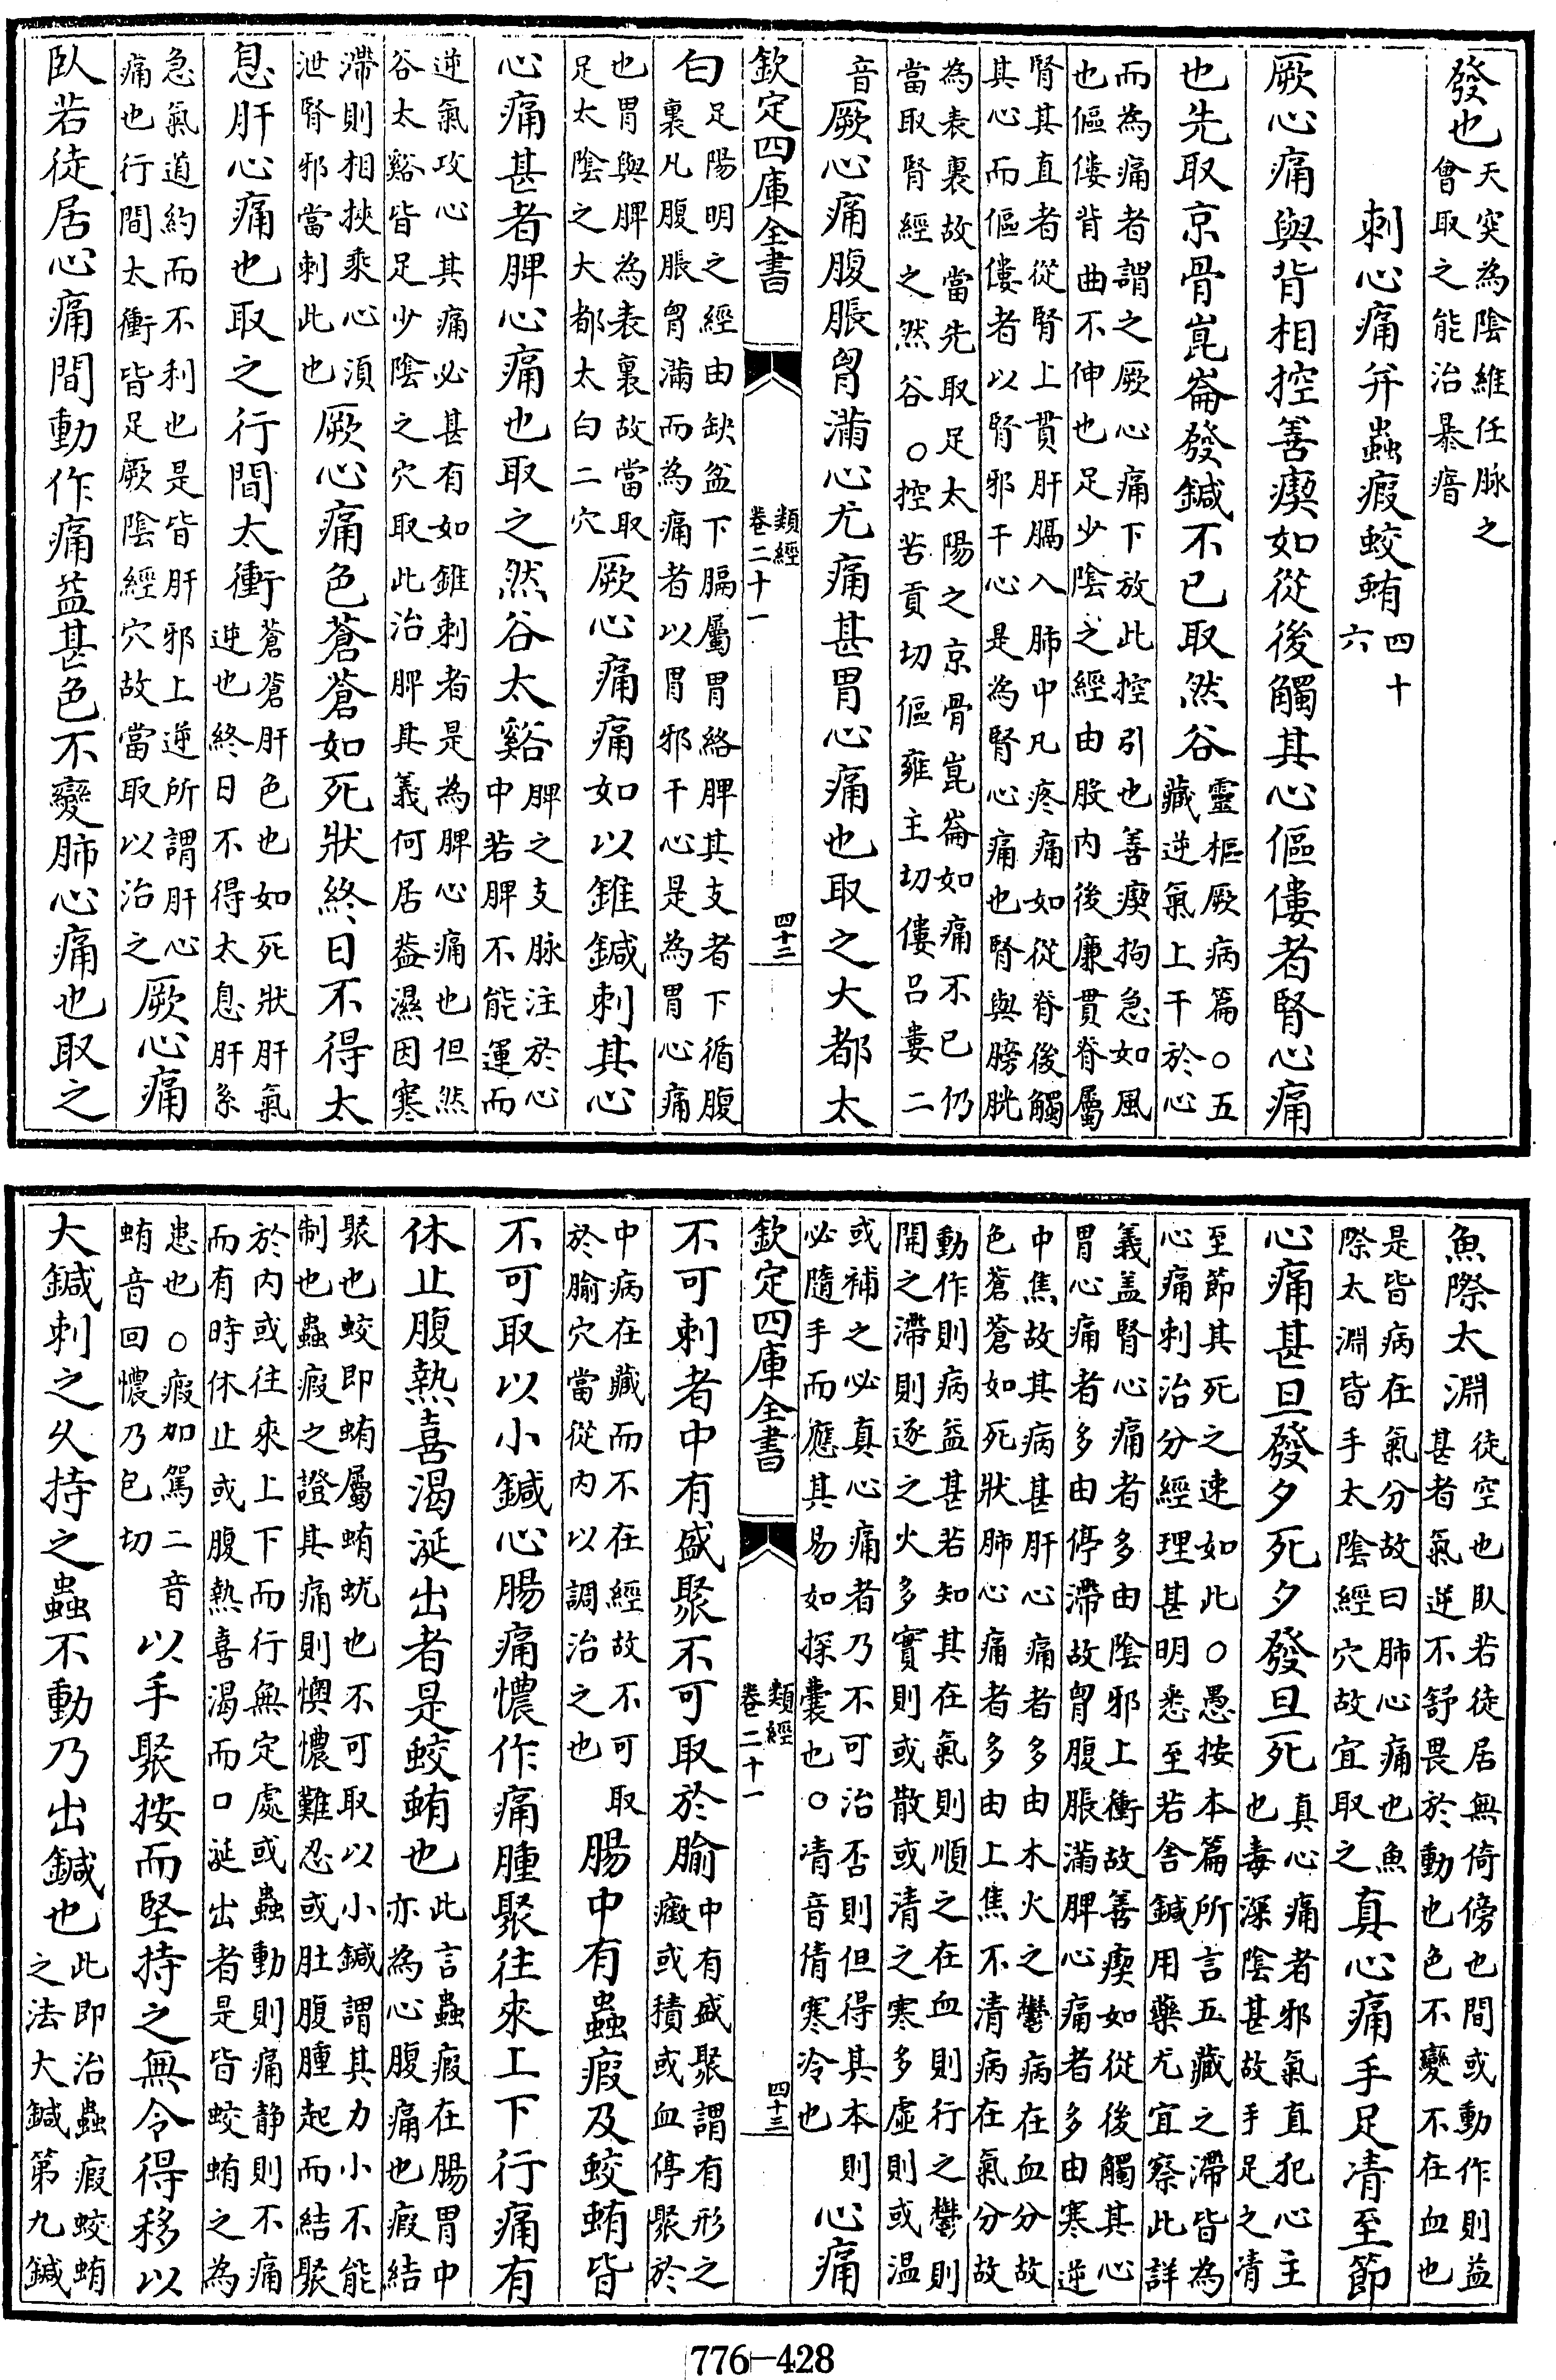 發也天突為陰維任脉之會取之能治暴瘖
刺心痛并蟲瘕蛟蛕四十六
厥心痛與背相控善瘈如從後觸其心傴僂者腎心痛
也先取京骨崑崙發鍼不已取然谷靈樞厥病篇○五藏逆氣上干於心
而為痛者謂之厥心痛下放此控引也善瘈拘急如風也傴僂背曲不伸也足少陰之經由股内後廉貫脊屬
腎其直者從腎上貫肝膈入肺中凡疼痛如從脊後觸其心而傴僂者以腎邪干心是為腎心痛也腎與膀胱
為表裏故當先取足太陽之京骨崑崙如痛不已仍當取腎經之然谷○控苦貢切傴雍主切僂呂婁二
音厥心痛腹脹胷滿心尤痛甚胃心痛也取之大都太
欽定四庫全書 類經 卷二十一 四十二
白足陽明之經由缺盆下膈屬胃絡脾其支者下循腹裏凡腹脹胷滿而為痛者以胃邪干心是為胃心痛
也胃與脾為表裏故當取足太陰之大都太白二穴厥心痛痛如以錐鍼刺其心
心痛甚者脾心痛也取之然谷太谿脾之支脉注於心中若脾不能運而
逆氣攻心其痛必甚有如錐刺者是為脾心痛也但然谷太谿皆足少陰之穴取此治脾其義何居盖濕因寒
滯則相挾乘心須泄腎邪當刺此也厥心痛色蒼蒼如死狀終日不得太
息肝心痛也取之行間太衝蒼蒼肝色也如死狀肝氣逆也終日不得太息肝系
急氣道約而不利也是皆肝邪上逆所謂肝心痛也行間太衝皆足厥陰經穴故當取以治之厥心痛
臥若徒居心痛間動作痛益甚色不變肺心痛也取之
魚際太淵徒空也臥若徒居無倚傍也間或動作則益甚者氣逆不舒畏於動也色不變不在血也
是皆病在氣分故曰肺心痛也魚際太淵皆手太陰經穴故宜取之真心痛手足凊至節
心痛甚旦發夕死夕發旦死真心痛者邪氣直犯心主也毒深陰甚故手足之凊
至節其死之速如此○愚按本篇所言五藏之滯皆為心痛刺治分經理甚明悉至若舍鍼用藥尤宜察此詳
義盖腎心痛者多由陰邪上衝故善瘈如從後觸其心胃心痛者多由停滯故胷腹脹滿脾心痛者多由寒逆
中焦故其病甚肝心痛者多由木火之鬱病在血分故色蒼蒼如死狀肺心痛者多由上焦不清病在氣分故
動作則病益甚若知其在氣則順之在血則行之鬱則開之滯則逐之火多實則或散或清之寒多虛則或温
或補之必真心痛者乃不可治否則但得其本則必隨手而應其易如探囊也○凊音倩寒冷也心痛
欽定四庫全書 類經 卷二十一 四十三
不可刺者中有盛聚不可取於腧中有盛聚謂有形之癥或積或血停聚於
中病在藏而不在經故不可取於腧穴當從内以調治之也腸中有蟲瘕及蛟蛕皆
不可取以小鍼心腸痛憹作痛腫聚往來上下行痛有
休止腹熱喜渴涎出者是蛟蛕也此言蟲瘕在腸胃中亦為心腹痛也瘕結
聚也蛟即蛕屬蛕蚘也不可取以小鍼謂其力小不能制也蟲瘕之證其痛則懊憹難忍或肚腹腫起而結聚
於内或往來上下而行無定處或蟲動則痛静則不痛而有時休止或腹熱喜渴而口涎出者是皆蛟蛕之為
患也○瘕加駕二音蛕音回憹乃包切以手聚按而堅持之無令得移以
大鍼刺之久持之蟲不動乃出鍼也此即治蟲瘕蛟蛕之法大鍼第九鍼
776-428